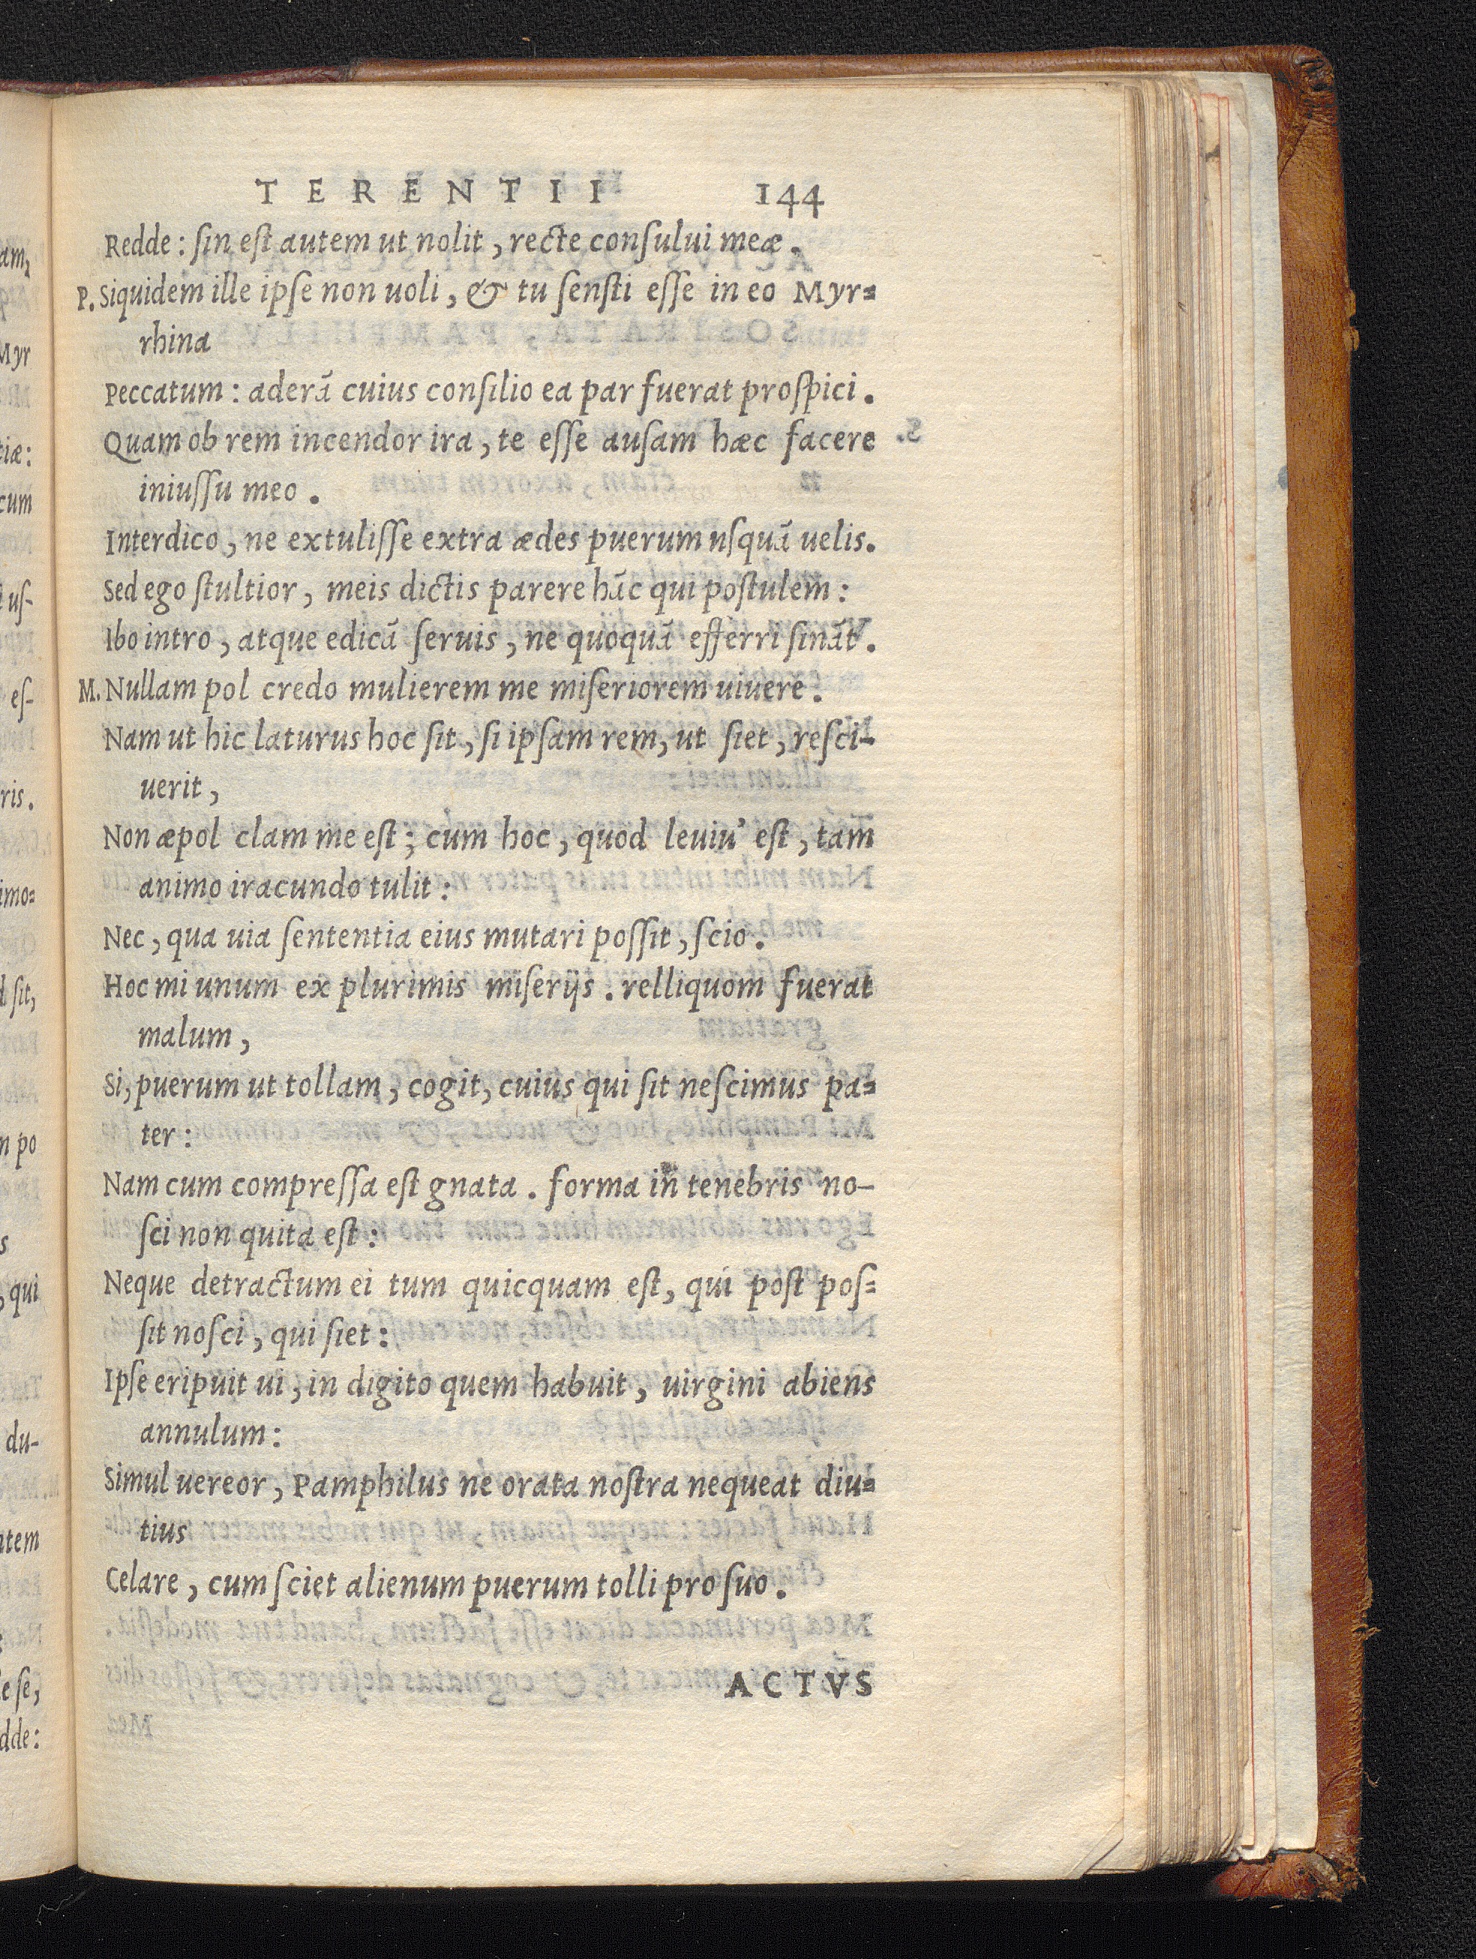 TERENTII 144
Redde: ſin eſt autem ut nolit, recte conſului meæ.
P. Siquidem ille ipſe non uoli, & tu ſenſti eſſe in eo Myr=
rhina
Peccatum: aderã cuius conſilio ea par fuerat proſpici.
Quam ob rem incendor ira, te eſſe auſam hæc facere
iniuſſu meo.
Interdico, ne extuliſſe extra ædes puerum uſquã uelis.
Sed ego ſtultior, meis dictis parere hãc qui poſtulem:
Ibo intro, atque edicã ſeruis, ne quoquã efferri ſinãt.
M. Nullam pol credo mulierem me miſeriorem uiuere.
Nam ut hic laturus hoc ſit, ſi ipſam rem, ut ſiet, reſci-
uerit,
Non æpol clam me eſt; cum hoc, quod leuiu' eſt, tam
animo iracundo tulit:
Nec, qua uia ſententia eius mutari poſſit, ſcio.
Hoc mi unum ex plurimis miſerijs. relliquom fuerat
malum,
Si, puerum ut tollam, cogit, cuius qui ſit neſcimus pa=
ter:
Nam cum compreſſa eſt gnata. forma in tenebris no-
ſci non quita eſt:
Neque detractum ei tum quicquam eſt, qui poſt poſ=
ſit noſci, qui ſiet:
Ipſe eripuit ui, in digito quem habuit, uirgini abiens
annulum:
Simul uereor, Pamphilus ne orata noſtra nequeat diu=
tius
Celare, cum ſciet alienum puerum tolli pro ſuo.
ACTVS